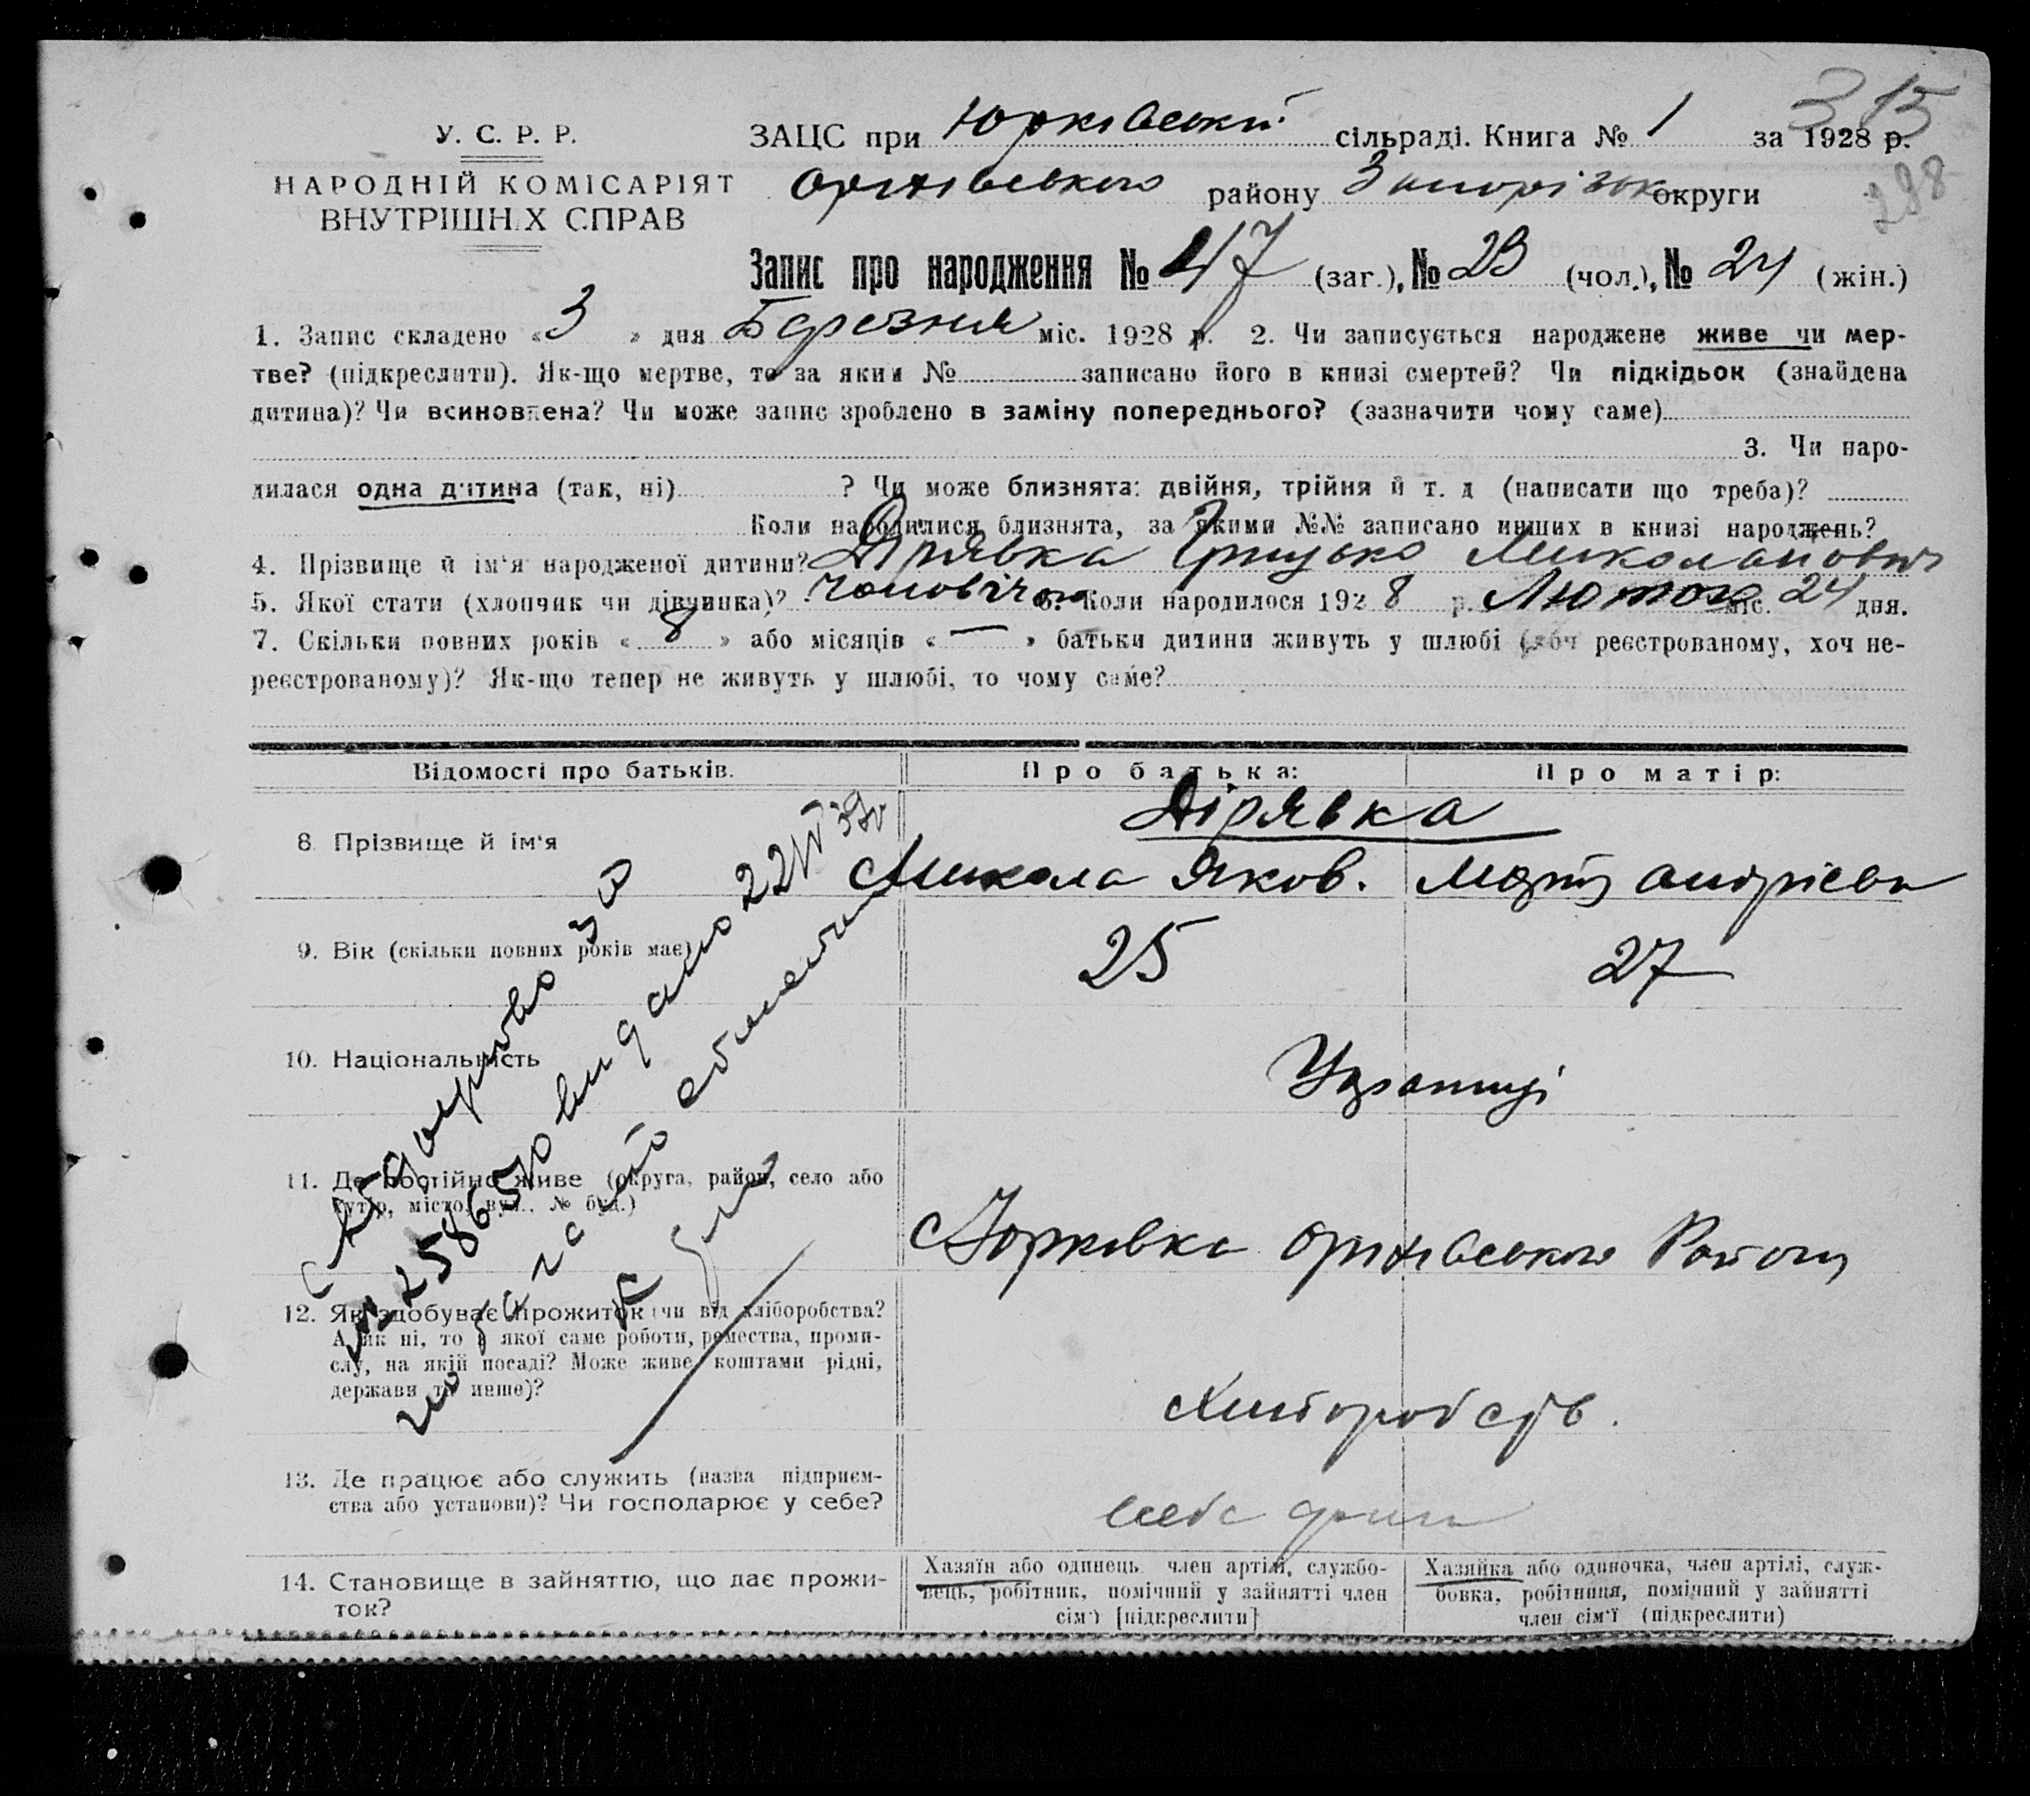 315
298
У. С. Р. Р.
НАРОДНІЙ КОМІСАРІЯТ
ВНУТРІШНІХ СПРАВ
ЗАЦС при Юрківській сільраді. Книга № 1 за 1928 р.
Оріхівського району Запорізьк округи
Запис про народження № 47 (заг.), № 23 (чол.), № 24 (жін.)
1. Запис складено « 3 » дня Березня міс. 1928 р. 2. Чи записується народжене живе чи мер-
тве? (підкреслити). Як-що мертве, то за яким № записано його в книзі смертей? Чи підкідьок (знайдена
дитина)? Чи всиновлена? Чи може запис зроблено в заміну попереднього? (зазначити чому саме)
3. Чи наро-
дилася одна дитина (так, ні) ? Чи може близнята: двійня, трійня й т. д (написати що треба)?
Коли народилися близнята, за якими №№ записано инших в книзі народжень?
4. Прізвище й ім'я народженої дитини? Дірявка Грицько Миколайович
5. Якої стати (хлопчик чи дівчинка)? чоловічої 6. Коли народилося 1928 р. Лютого міс. 24 дня.
7. Скільки повних років « 8 » або місяців « — » батьки дитини живуть у шлюбі (хоч реєстрованому, хоч не-
реєстрованому)? Як-що тепер не живуть у шлюбі, то чому саме?
Відомості про батьків. Про батька: Про матір:
Дірявка
8. Прізвище й ім'я Микола Яков. Март Андрієвн
9. Вік (скільки повних років має) 25 27
10. Національність Українці
11. Де постійно живе (округа, район, село або
хутір, місто, вул., № буд.)
с Юрковка Оріхівського Району
12. Як здобуває прожиток (чи від хліборобства?
А як ні, то з якої саме роботи, ремества, проми-
слу, на якій посаді? Може живе коштами рідні,
держави та инше)?
Хліборобств.
13. Де працює або служить (назва підприєм-
ства або установи)? Чи господарює у себе?
в себе дома
14. Становище в зайняттю, що дає прожи-
ток?
Хазяїн або одинець, член артілі, службо-
вець, робітник, помічний у зайнятті член
сім'ї [підкреслити]
Хазяйка або одиночка, член артілі, служ-
бовка, робітниця, помічний у зайнятті
член сім'ї (підкреслити)
видано 22/IV 39р